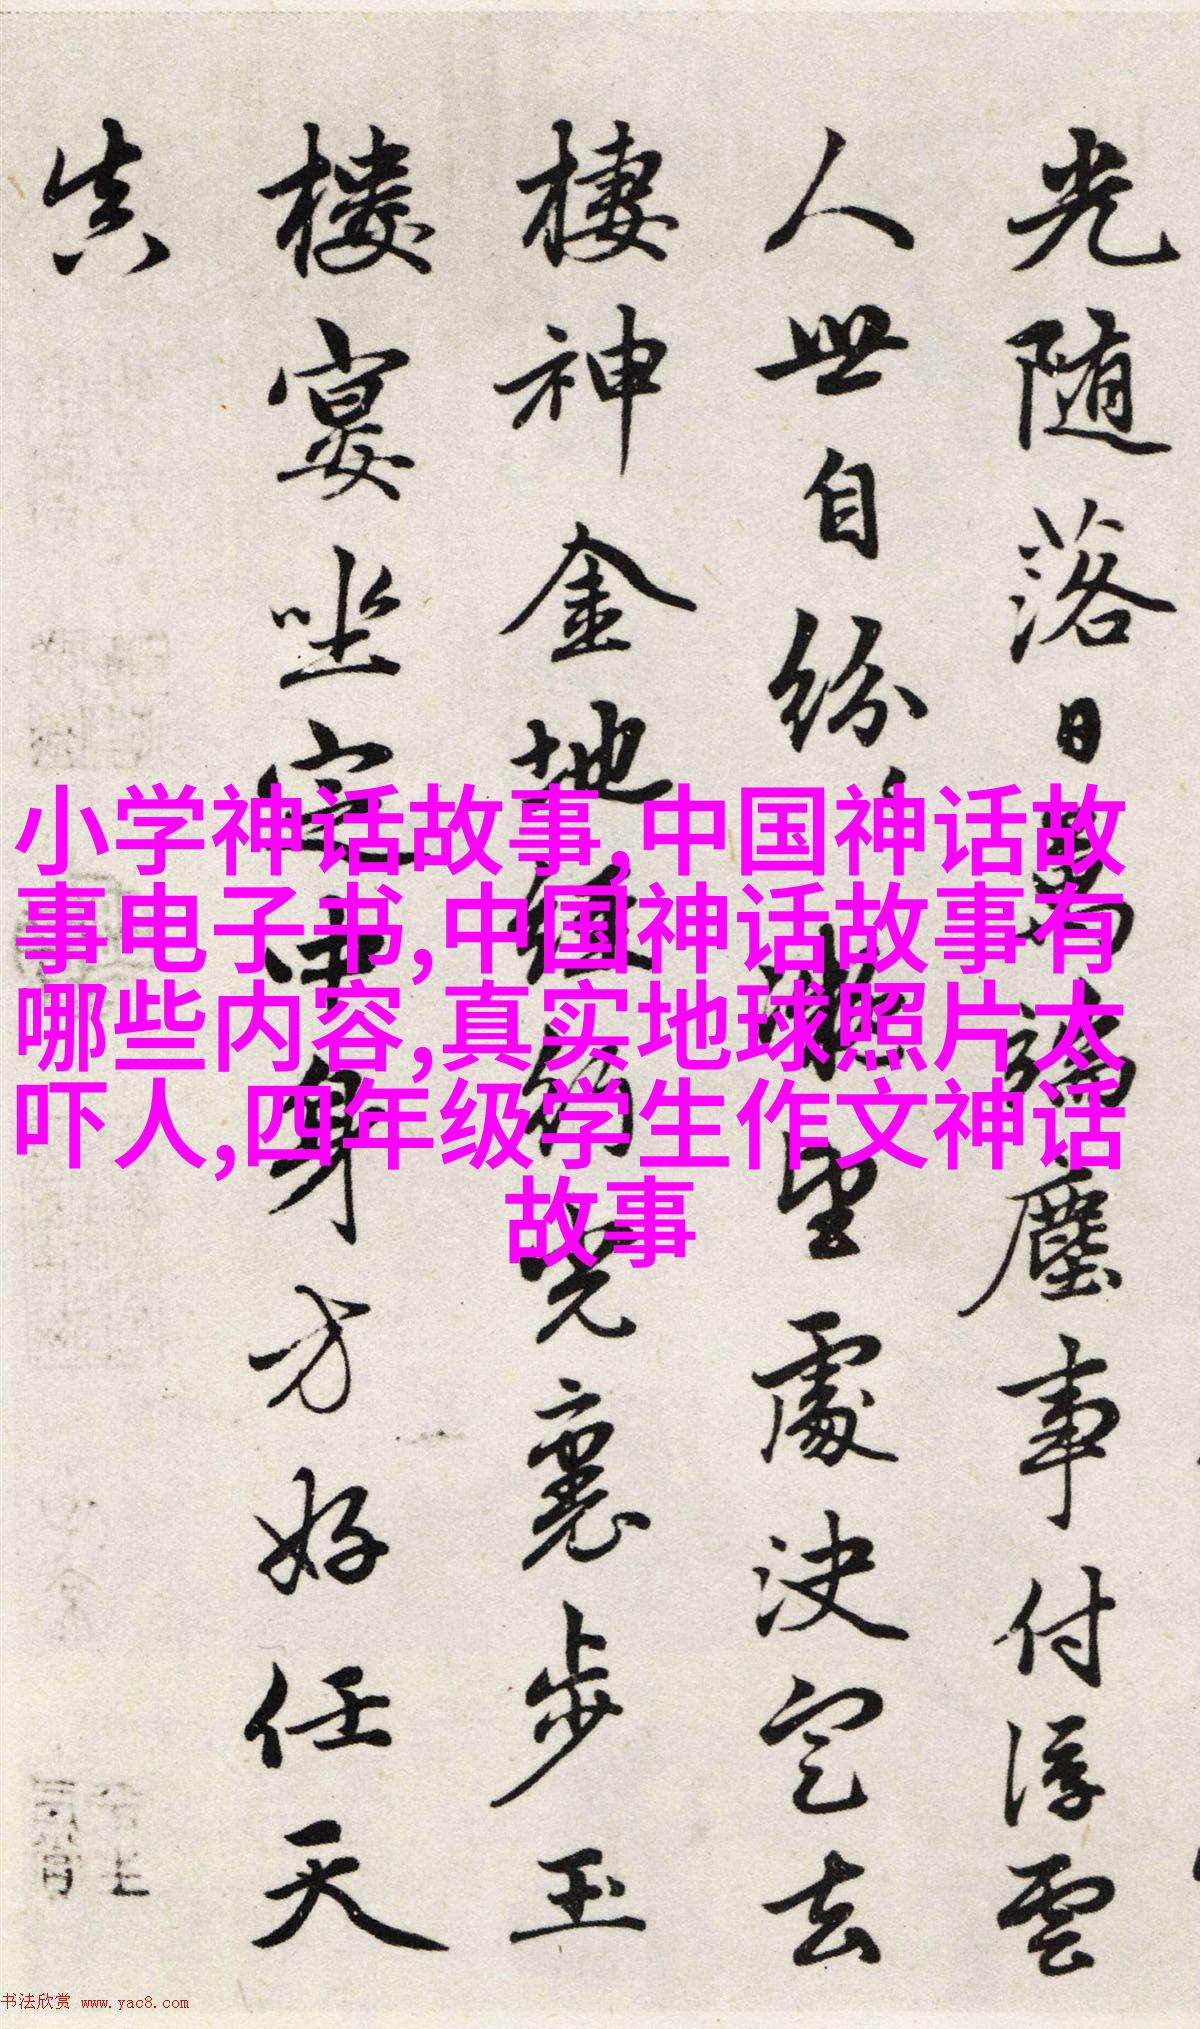 光随落日萬端塵事付浮雲
人世自纷望處決定去
棲神金地光襄步玉
樓宴坐定中身方好任天
真
小学神话故事,中国神话故
事电子书,中国神话故事有
哪些内容,真实地球照片太
吓人,四年级学生作文神话
故事
书法欣赏 www.yac8.com